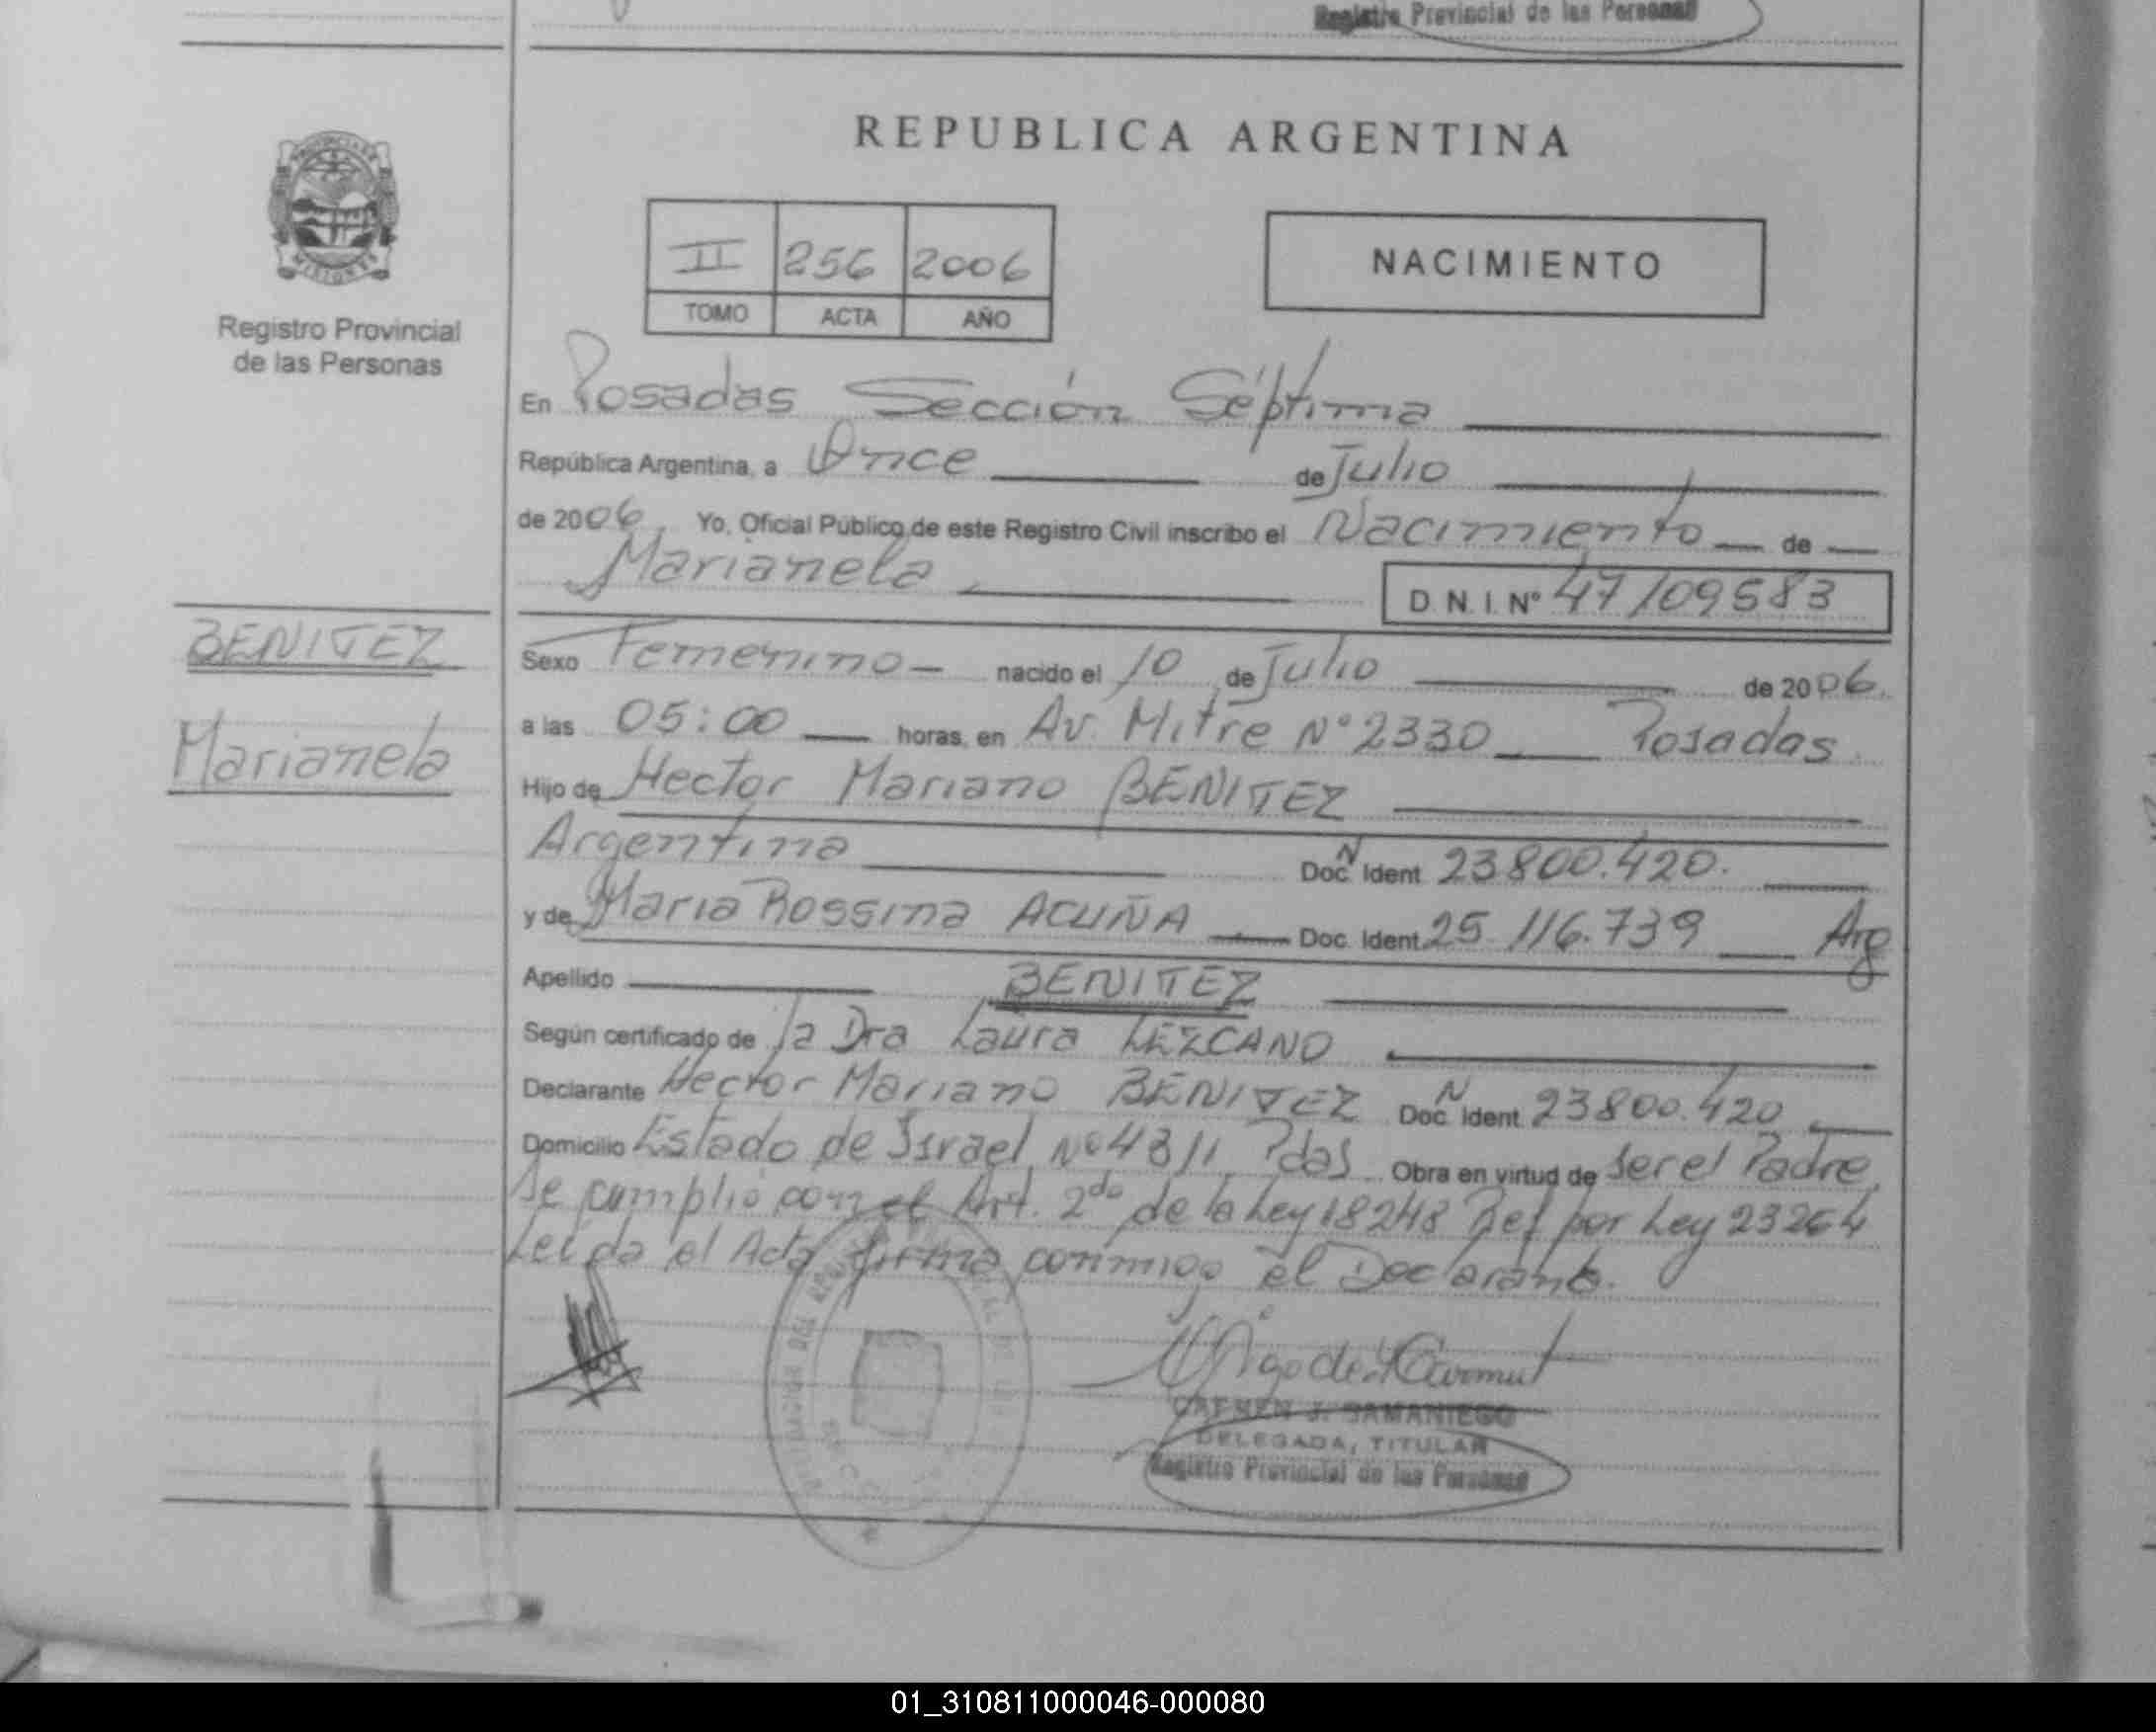 Registro Provincial de las Personas
REPUBLICA ARGENTINA
PROVINCIA DE
MISIONES
Registro Provincial
de las Personas
II 256 2006
TOMO ACTA AÑO
NACIMIENTO
En Posadas Sección Séptima
República Argentina, a Once de Julio
de 2006. Yo, Oficial Público de este Registro Civil inscribo el Nacimiento de
Marianela
D.N.I. Nº 47109583
BENITEZ
Marianela
Sexo Femenino nacido el 10 de Julio de 2006.
a las 05:00 horas, en Av. Mitre Nº 2330 Posadas
Hijo de Hector Mariano BENITEZ
Argentina Doc. N Ident 23800.420.
y de Maria Rossina ACUÑA Doc. Ident. 25.116.739 Arg
Apellido BENITEZ
Según certificado de la Dra Laura LEZCANO
Declarante Hector Mariano BENITEZ Doc. N Ident. 23800.420
Domicilio Estado de Israel Nº 4811 Pdas. Obra en virtud de ser el Padre
Se cumplio con el Art. 2do de la Ley 18248 Ref por Ley 23264
Leida el Acta firma conmigo el Declarante.
CARMEN J. SAMANIEGO
DELEGADA, TITULAR
Registro Provincial de las Personas
01_310811000046-000080